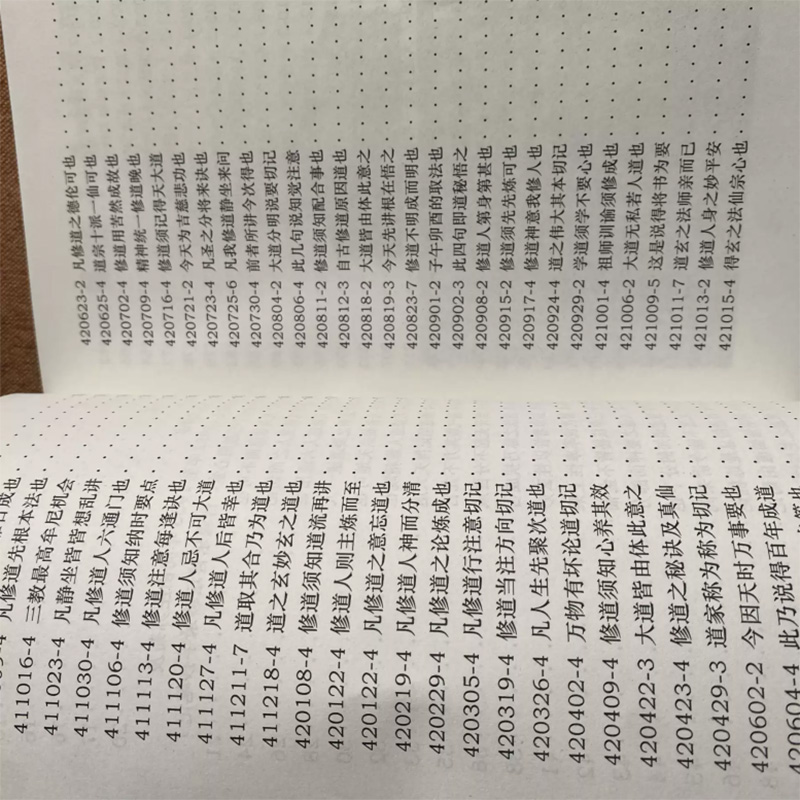 凡修道先根本法也
411016-4 三教最高牟尼机会
411023-4 凡静坐皆皆想乱讲
411030-4 凡修道人六通门也
411106-4 修道须知纳时要点
411113-4 修道注意每逢诀也
411120-4 修道人忌不可大道
411127-4 凡修道人后皆幸也
411211-7 道取其合乃为道也
411218-4 道之玄妙玄之道也
420108-4 修道须知道流再讲
420122-4 修道人则主炼而至
420122-4 凡修道之意忘道也
420219-4 凡修道人神而分清
420229-4 凡修道之论炼成也
420305-4 凡修道行注意切记
420319-4 修道当注方向切记
420326-4 凡人生先聚次道也
420402-4 万物有坏论道切记
420409-4 修道须知心养其效
420422-3 大道皆由体此意之
420423-4 修道之秘诀及真仙
420429-3 道家称为称为切记
420602-2 今因天时万事要也
420604-4 此乃说得百年成道
420623-2 凡修道之德伦可也
420625-4 道宗十派一仙可也
420702-4 修道用苦然成故也
420709-4 精神统一修道晚也
420716-4 修道须记得天大道
420721-2 今天为吉慈悲功也
420723-4 凡圣之分将来诀也
420725-6 凡我修道静坐来问
420730-4 前者所讲今次得也
420804-2 大道分明说要切记
420806-4 此几句说知觉注意
420811-2 修道须知配合事也
420812-3 自古修道原因道也
420818-2 大道皆由体此意之
420819-3 今天先讲根在悟之
420823-7 修道不明成而明也
420901-2 子午卯酉的取法也
420902-3 此四句即道秘悟之
420908-2 修道人第身第甚也
420915-2 修道须先先炼可也
420917-4 修道神意我修人也
420924-4 道之伟大其本切记
420929-2 学道须学不要心也
421001-4 祖师训谕须修成也
421006-2 大道无私若人道也
421009-5 这是说得将书为要
421011-7 道玄之法师亲而已
421013-2 修道人身之妙平安
421015-4 得玄之法仙宗心也